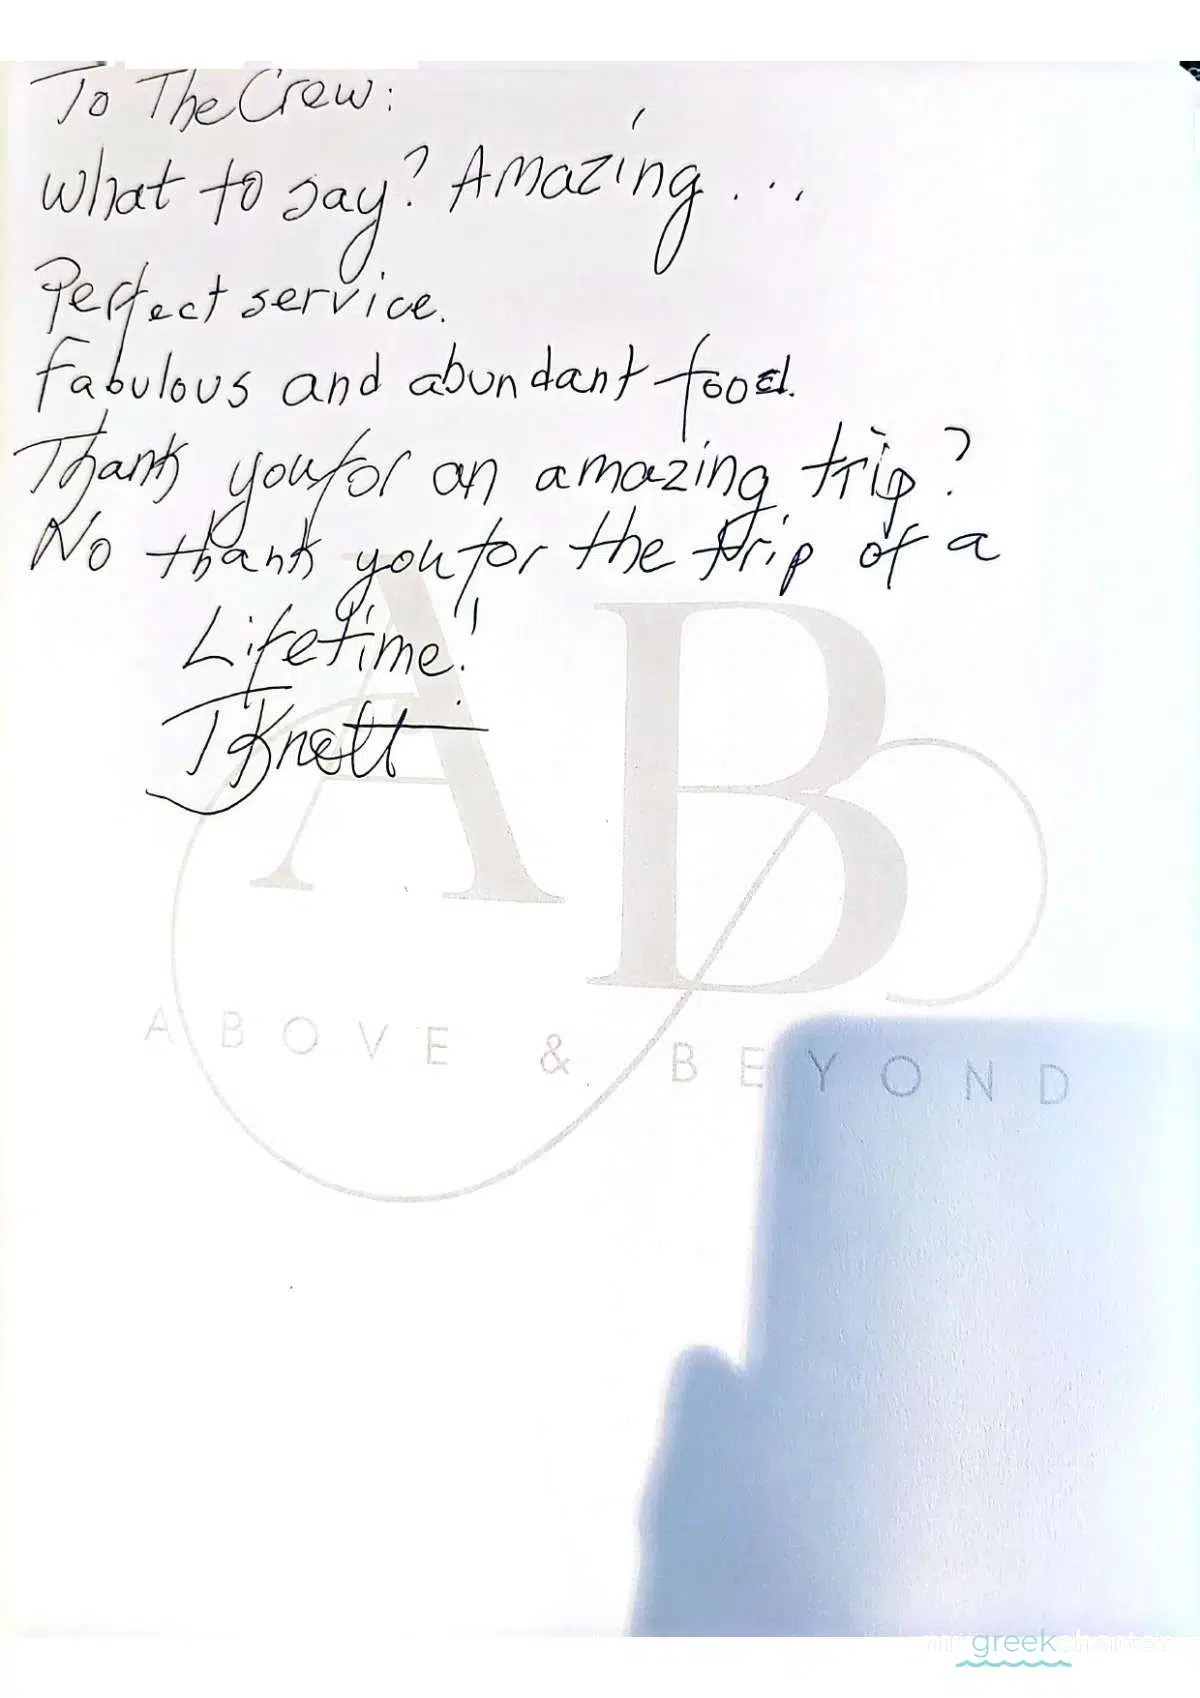 To The Crew:
What to say? Amazing...
Perfect service.
Fabulous and abundant food.
Thank you for an amazing trip?
No thank you for the trip of a
Lifetime!
AB
ABOVE & BEYOND
mygreekcharter